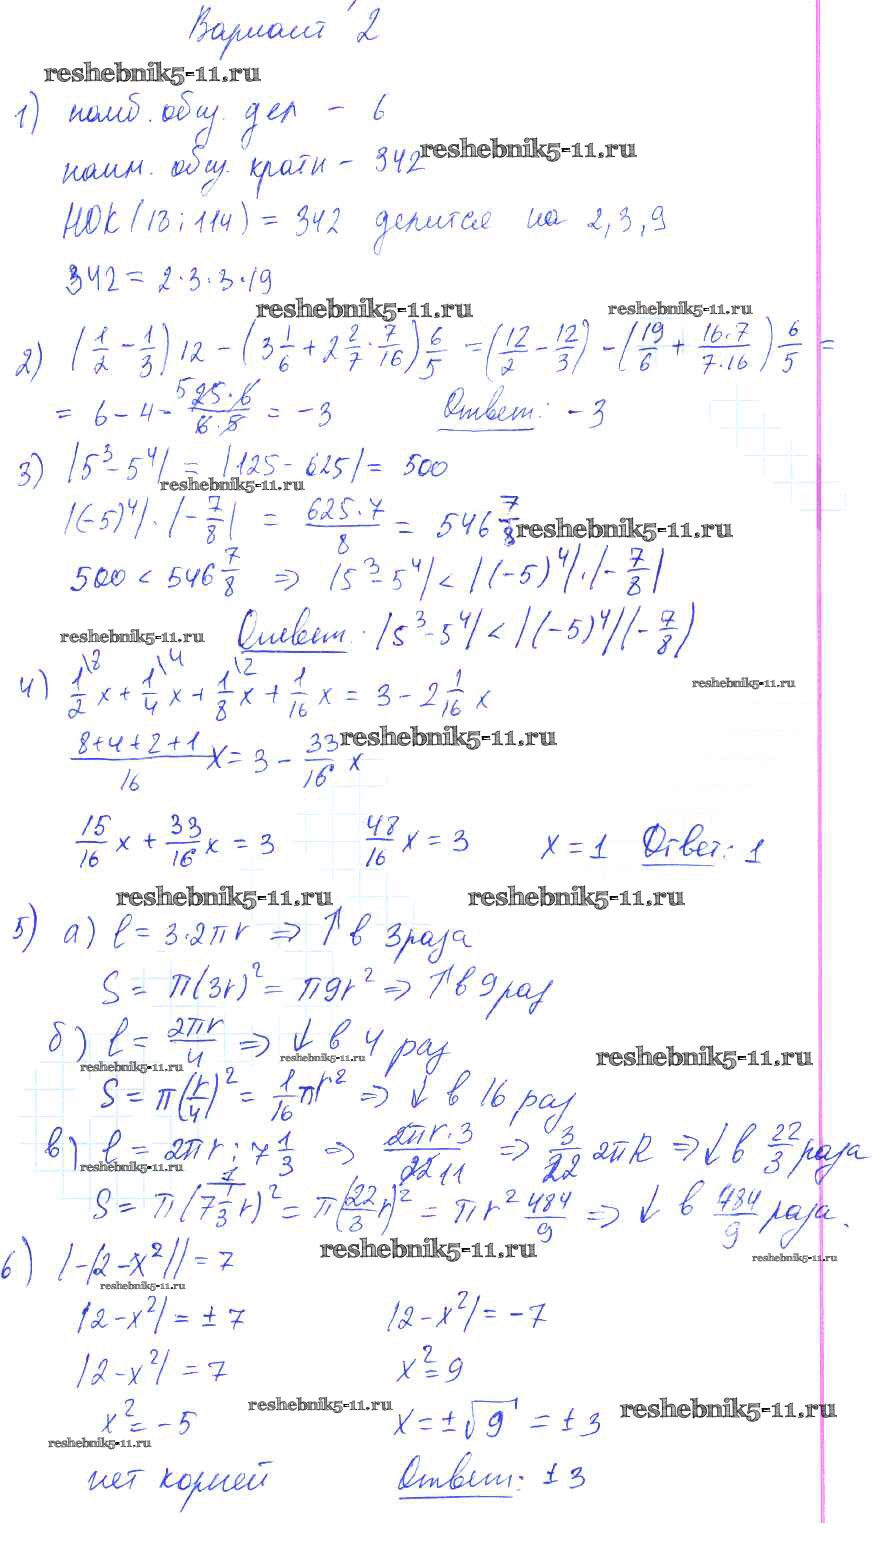 Вариант 2
reshebnik5-11.ru
1) наиб. общ. дел - 6
reshebnik5-11.ru
наим. общ. кратн - 342
НОК (18; 114) = 342 делится на 2, 3, 9
342 = 2·3·3·19
reshebnik5-11.ru reshebnik5-11.ru
2) (1/2 - 1/3) 12 - (3 1/6 + 2 2/7 · 7/16) 6/5 = (12/2 - 12/3) - (19/6 + 16·7/7·16) 6/5 =
= 6 - 4 - 5 25·6/6·5 = -3 Ответ: -3
3) |5³ - 5⁴| = |125 - 625| = 500
reshebnik5-11.ru
|(-5)⁴| · |-7/8| = 625·7/8 = 546 7/8
reshebnik5-11.ru
500 < 546 7/8 ⇒ |5³ - 5⁴| < |(-5)⁴|·|-7/8|
reshebnik5-11.ru
Ответ: |5³ - 5⁴| < |(-5)⁴||-7/8|
4) 1/2\8 x + 1/4\4 x + 1/8\2 x + 1/16 x = 3 - 2 1/16 x
reshebnik5-11.ru
8+4+2+1/16 x = 3 - 33/16 x
reshebnik5-11.ru
15/16 x + 33/16 x = 3 48/16 x = 3 x = 1 Ответ: 1
reshebnik5-11.ru reshebnik5-11.ru
5) а) l = 3·2πr ⇒ ↑ в 3 раза
S = π(3r)² = π9r² ⇒ ↑ в 9 раз
б) l = 2πr/4 ⇒ ↓ в 4 раз
reshebnik5-11.ru reshebnik5-11.ru reshebnik5-11.ru
S = π(r/4)² = 1/16 πr² ⇒ ↓ в 16 раз
в) l = 2πr : 7 1/3 ⇒ 2πr·3/22 11 ⇒ 3/22 2πR ⇒ ↓ в 22/3 раза
reshebnik5-11.ru
S = π(1/7 1/3 r)² = π(22/3 r)² = πr² 484/9 ⇒ ↓ в 484/9 раза.
6) |-|2-x²|| = 7
reshebnik5-11.ru reshebnik5-11.ru
reshebnik5-11.ru
|2-x²| = ±7 |2-x²| = -7
|2-x²| = 7 x² = 9
reshebnik5-11.ru reshebnik5-11.ru
x² = -5 x = ±√9 = ±3
reshebnik5-11.ru
нет корней Ответ: ±3